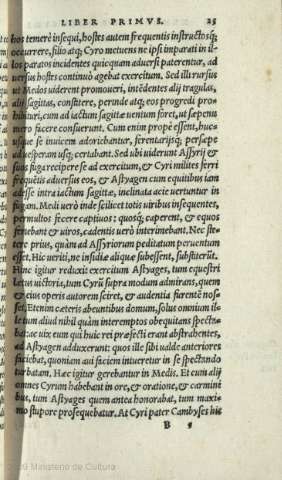 LIBER PRIMVS. 25
hos temerè insequi, hostes autem frequentis instructosq;
occurrere, filio atq; Cyro metuens ne ipsi imparati in il-
los paratos incidentes quicquam aduersi paterentur, ad
uersus hostes continuò agebat exercitum. Sed illi rursus
ut Medos uiderent promoueri, intēdentes alij tragulas,
alij sagittas, constitere, perinde atq; eos progredi pro-
hibituri, cum ad iactum sagittæ uentum foret, ut sæpenu
mero facere consuerunt. Cum enim propè essent, huc-
usque se inuicem adoriebantur, ferentarijsq; persæpe
ad uesperam usq; certabant. Sed ubi uiderunt Assyrij et
suos fuga recipere se ad exercitum, & Cyri milites ferri
frequētis aduersus eos, & Astyagen cum equitibus iam
adesse intra iactum sagittæ, inclinata acie uertuntur in
fugam. Medi uerò inde scilicet totis uiribus insequentes,
permultos fecere captiuos; quosq; caperent, & equos
feriebant & uiros, cadentis uerò interimebant. Nec ste-
tere prius, quàm ad Assyriorum peditatum peruentum
esset. Hic ueriti, ne insidiæ aliquæ subessent, substiterūt.
Hinc igitur reduxit exercitum Astyages, tum equestri
lætus uictoria, tum Cyrū supra modum admirans, quem
& eius operis autorem sciret, & audentia furentē nos-
set. Etenim cæteris abeuntibus domum, solus omnium il-
le tum aliud nihil quàm interemptos obequitans specta-
bat: ac uix eum qui huic rei præfecti erant abstrahentes,
ad Astyagen adduxerunt: quos ille sibi ualde anteriores
faciebat, quoniam aui faciem intueretur in se spectando
turbatam. Hæc igitur gerebantur in Medis. Et cum alij
omnes Cyrum habebant in ore, & oratione, & carmini
bus, tum Astyages quem antea honorabat, tum maxi-
mo stupore prosequebatur. At Cyri pater Cambyses his
B 5
Ministerio de Cultura